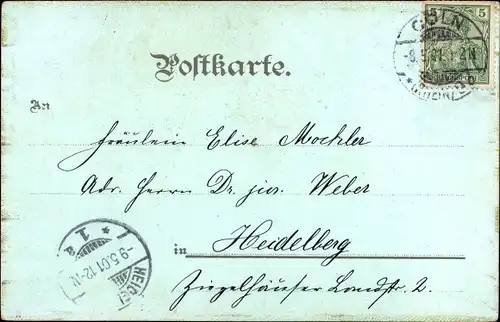 CÖLN
5
-9.5.01
(RHEIN)
Postkarte.
An
Fräulein Elise Mochler
Adr. Herrn Dr. jur. Weber
in Heidelberg
Ziegelhäuser Landstr. 2.
-9.5.01.12-1N
* 1 a